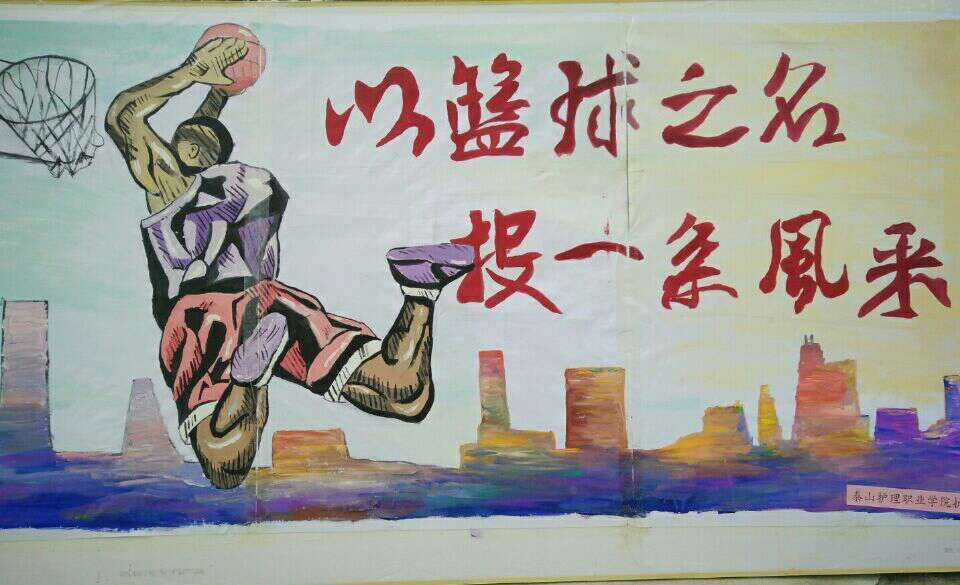 以篮球之名
投一系風采
泰山护理职业学院